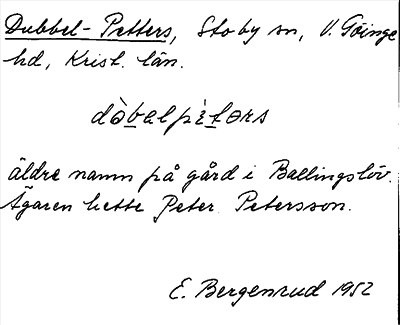 Dubbel-Petters, Stoby sn, V. Göinge
hd, Krist. län.
dòbalpè̩tərs
äldre namn på gård i Ballingslöv.
Ägaren hette Peter Petersson.
E. Bergenrud 1952